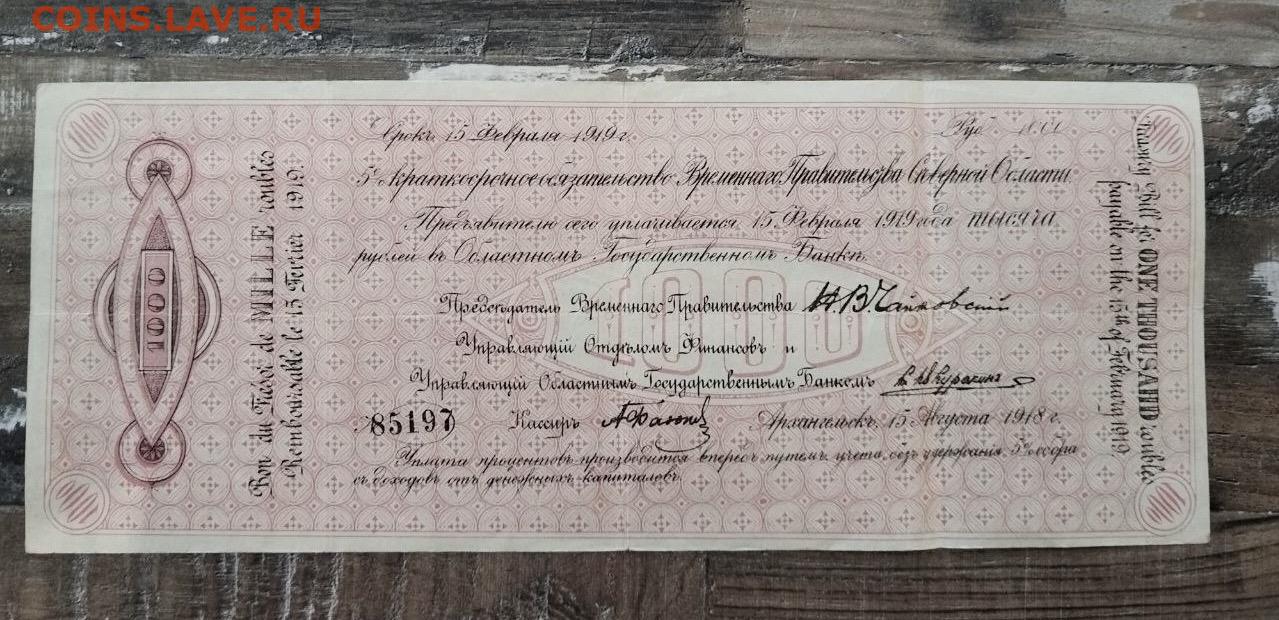 COINS.LAVE.RU
Срокъ 15 Февраля 1919 г.
Руб. 1000
5% краткосрочное обязательство Временнаго Правительства Сѣверной Области.
Предъявителю сего уплачивается 15 Февраля 1919 года тысяча
рублей въ Областномъ Государственномъ Банкѣ.
1000
Предсѣдатель Временнаго Правительства Н. В. Чайковскій
Управляющій Отдѣломъ Финансовъ и
Управляющій Областнымъ Государственнымъ Банкомъ Куракинъ
85197 Кассиръ
Архангельскъ, 15 Августа 1918 г.
Уплата процентовъ производится впередъ путемъ учета, безъ удержанія 5% сбора
съ доходовъ отъ денежныхъ капиталовъ.
1000
Bon du Trésor de MILLE roubles
Remboursable le 15 Février 1919.
Treasury Bill for ONE THOUSAND roubles
payable on the 15th of February 1919